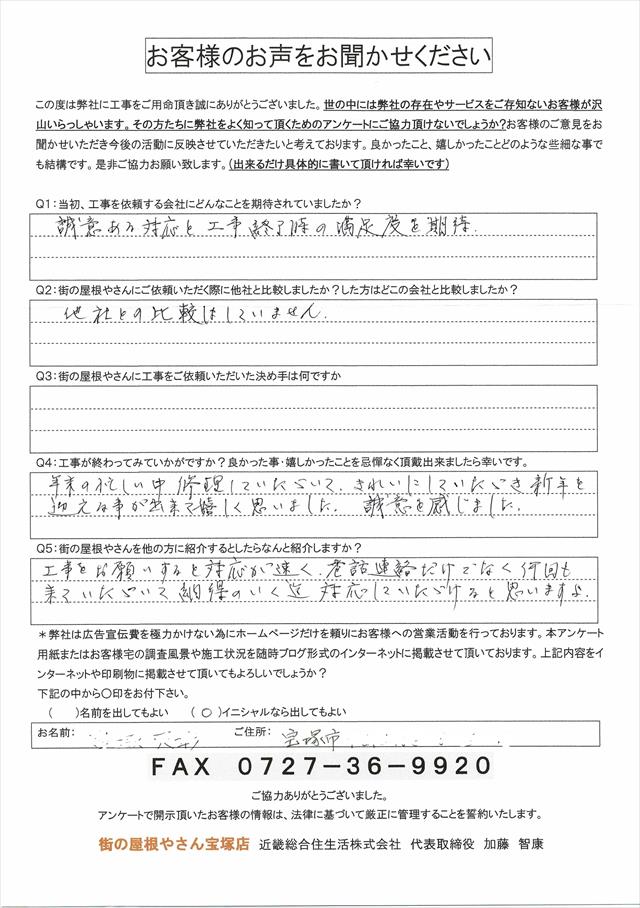 お客様のお声をお聞かせください
この度は弊社に工事をご用命頂き誠にありがとうございました。世の中には弊社の存在やサービスをご存知ないお客様が沢
山いらっしゃいます。その方たちに弊社をよく知って頂くためのアンケートにご協力頂けないでしょうか?お客様のご意見をお
聞かせいただき今後の活動に反映させていただきたいと考えております。良かったこと、嬉しかったことどのような些細な事で
も結構です。是非ご協力お願い致します。(出来るだけ具体的に書いて頂ければ幸いです)
Q1:当初、工事を依頼する会社にどんなことを期待されていましたか?
誠意ある対応と工事終了時の満足度を期待.
Q2:街の屋根やさんにご依頼いただく際に他社と比較しましたか?した方はどこの会社と比較しましたか?
他社との比較はしていません.
Q3:街の屋根やさんに工事をご依頼いただいた決め手は何ですか
Q4:工事が終わってみていかがですか?良かった事・嬉しかったことを忌憚なく頂戴出来ましたら幸いです。
年末の忙しい中修理していただいて、きれいにしていただき新年を
迎える事が出来て嬉しく思いました. 誠意を感じました.
Q5:街の屋根やさんを他の方に紹介するとしたらなんと紹介しますか?
工事をお願いすると対応が速く、電話連絡だけでなく何回も
来ていただいて納得のいく迄対応していただけると思いますよ.
*弊社は広告宣伝費を極力かけない為にホームページだけを頼りにお客様への営業活動を行っております。本アンケート
用紙またはお客様宅の調査風景や施工状況を随時ブログ形式のインターネットに掲載させて頂いております。上記内容をイ
ンターネットや印刷物に掲載させて頂いてもよろしいでしょうか?
下記の中から〇印をお付下さい。
( )名前を出してもよい (〇)イニシャルなら出してもよい
お名前: ご住所: 宝塚市
FAX 0727-36-9920
ご協力ありがとうございました。
アンケートで開示頂いたお客様の情報は、法律に基づいて厳正に管理することを誓約いたします。
街の屋根やさん宝塚店 近畿総合住生活株式会社 代表取締役 加藤 智康